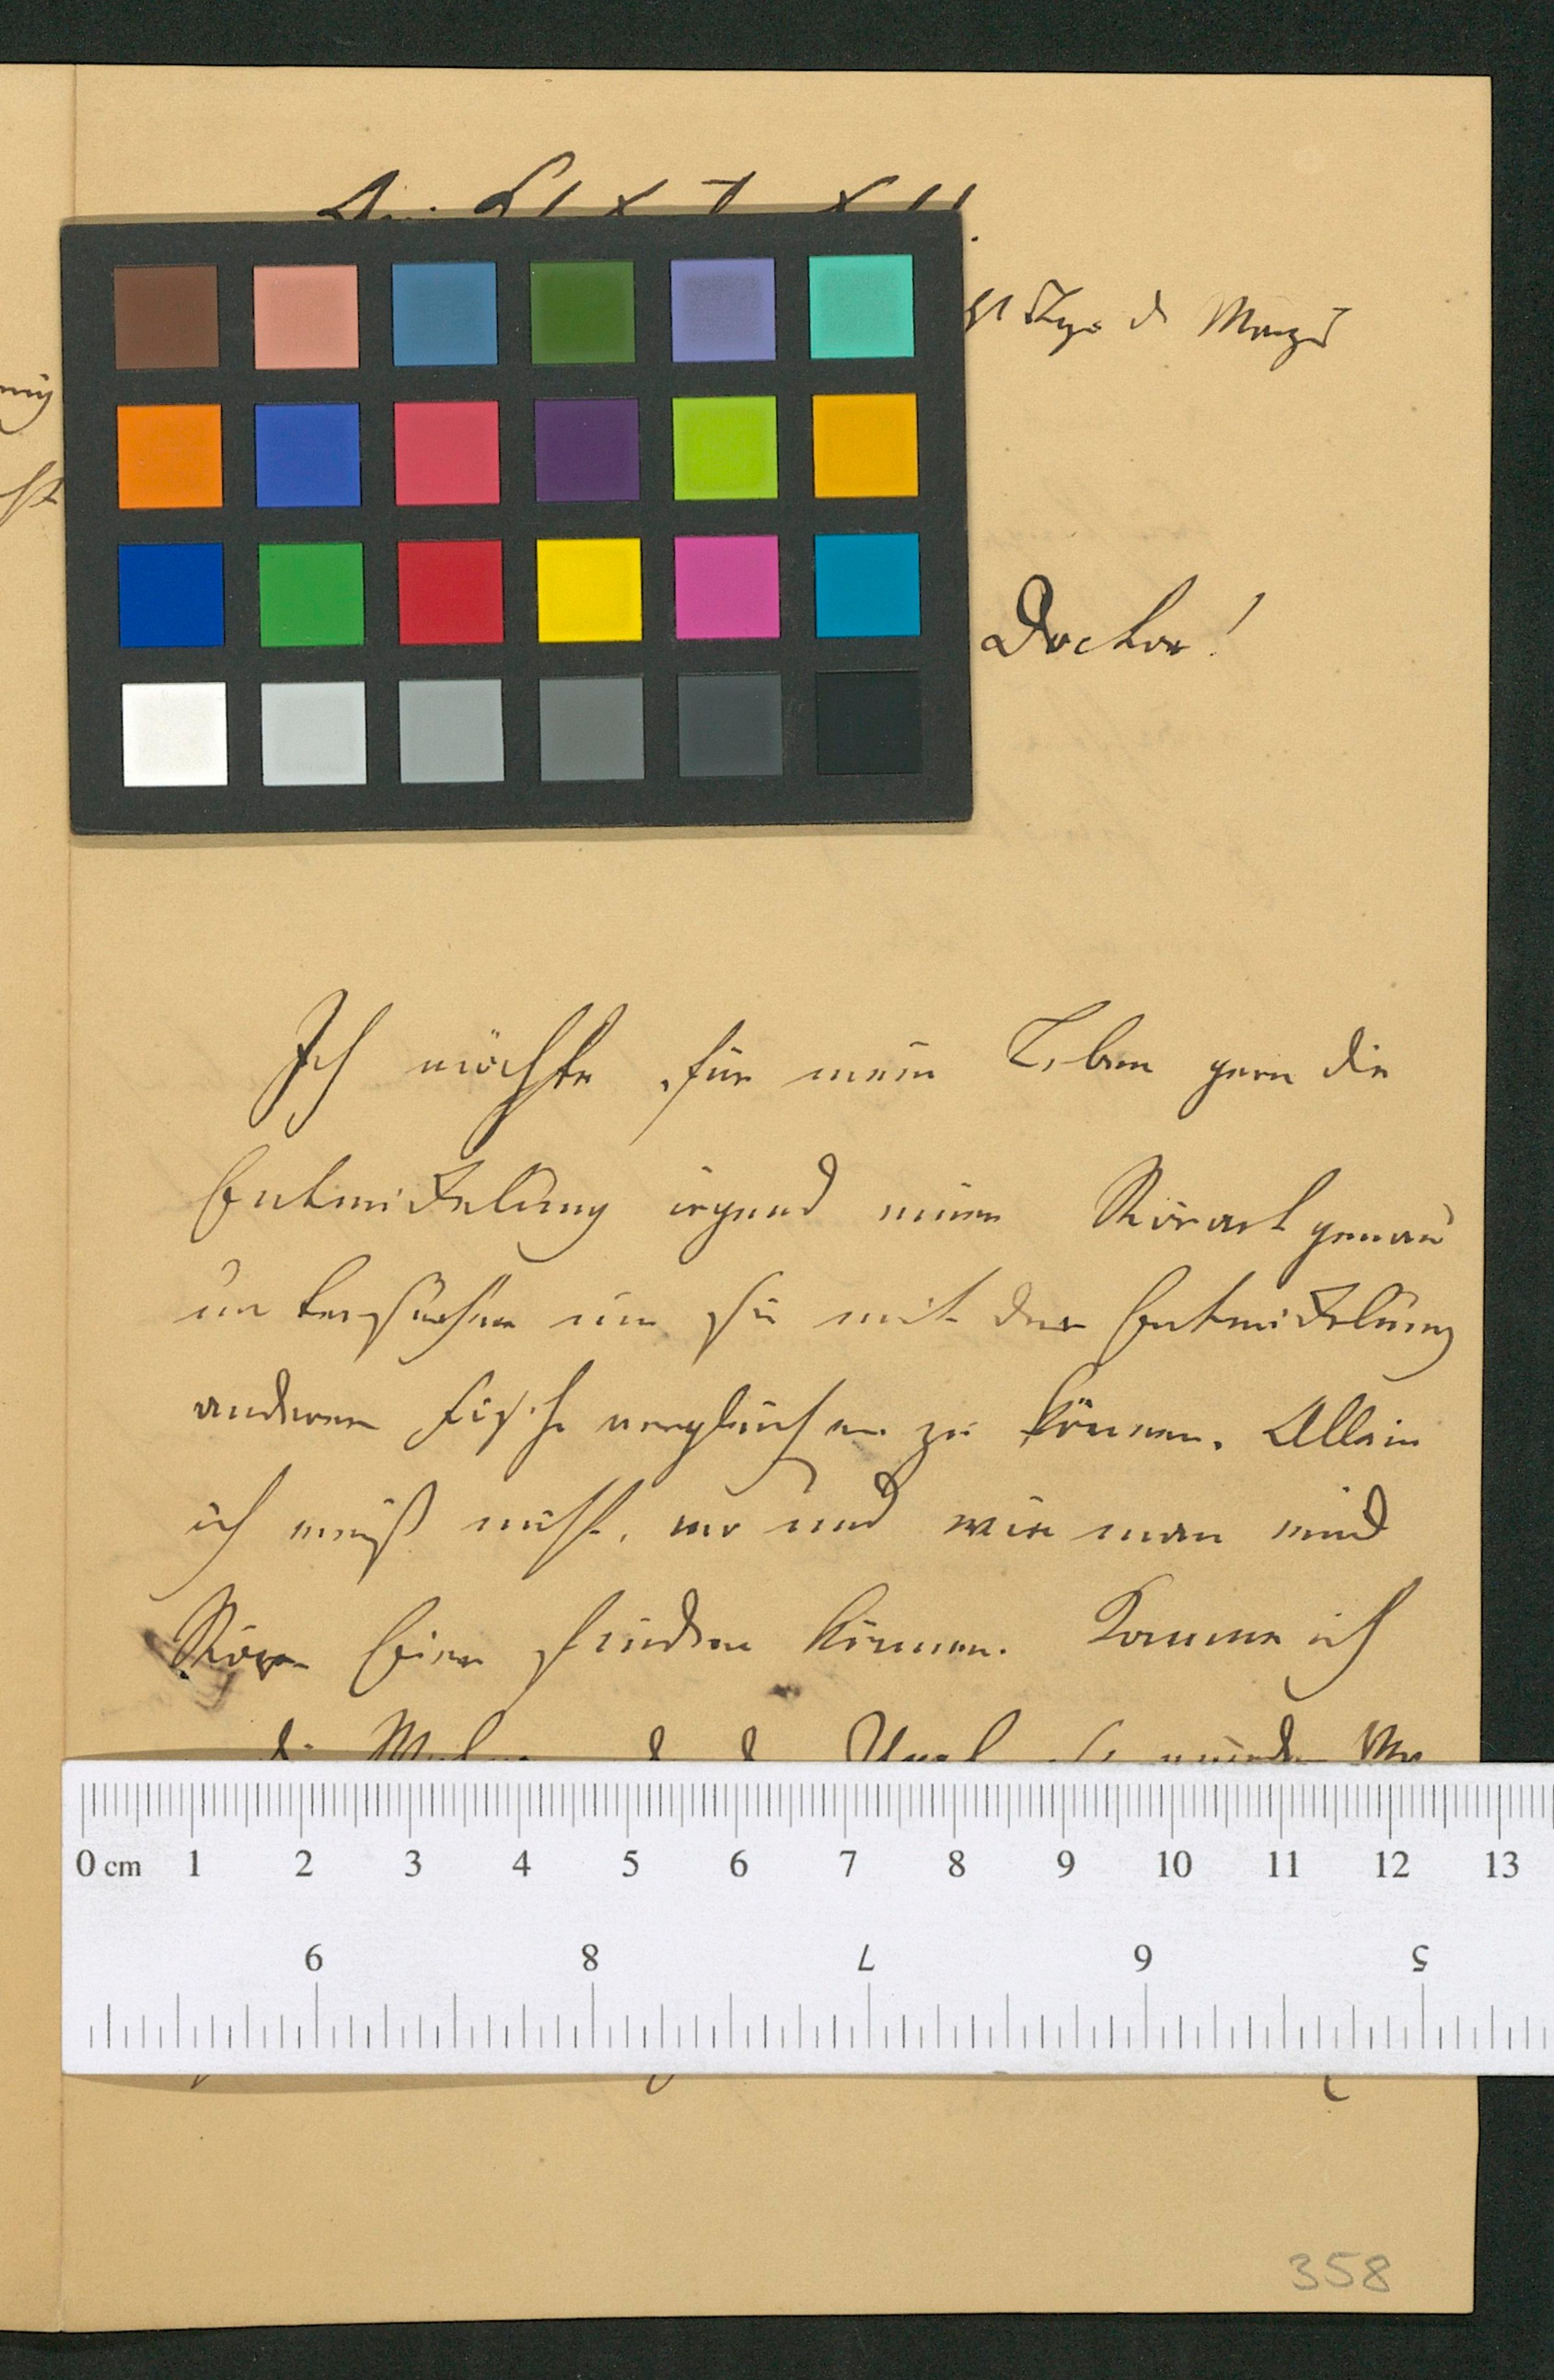 Doctor!
Ich möchte für mein Leben gern die
Entwickelung irgend einer Störart genau
untersuchen um sie mit der Entwickelung
anderer Fische vergleichen zu können. Allein
ich weiß nicht, wo und wie man wird
Stör Eier finden können. Komme ich
0 cm 1 2 3 4 5 6 7 8 9 10 11 12 13
9 8 7 6 5
358